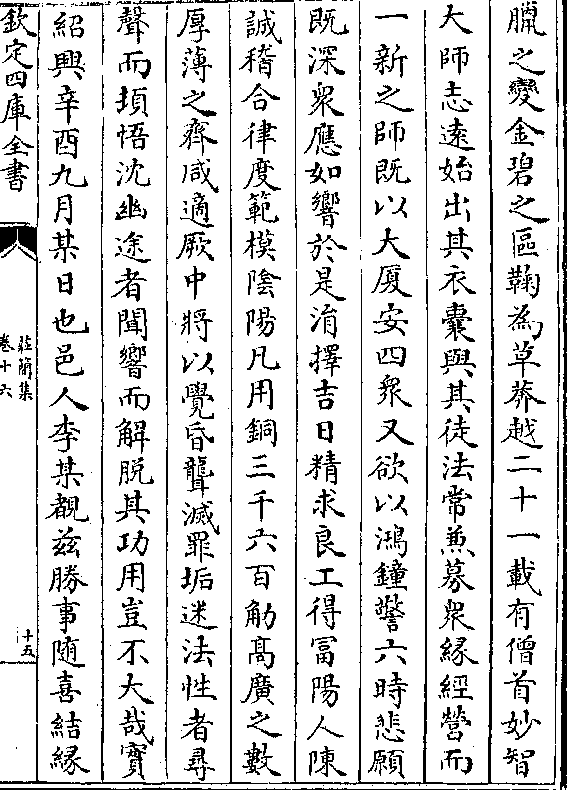 臘之變金碧之區鞠為草莽越二十一載有僧首妙智
大師志逺始出其衣囊與其徒法常兼募衆縁經營而
一新之師既以大厦安四衆又欲以鴻鐘警六時悲願
既深衆應如響於是消擇吉日精求良工得冨陽人陳
誠稽合律度範模陰陽凡用銅三千六百觔髙廣之數
厚薄之齊咸適厥中將以覺昏聾滅罪垢迷法性者尋
聲而頊悟沈幽途者聞響而解脱其功用豈不大哉實
紹興辛酉九月某日也邑人李某覩兹勝事随喜結縁
欽定四庫全書
莊簡集
卷十六
十五